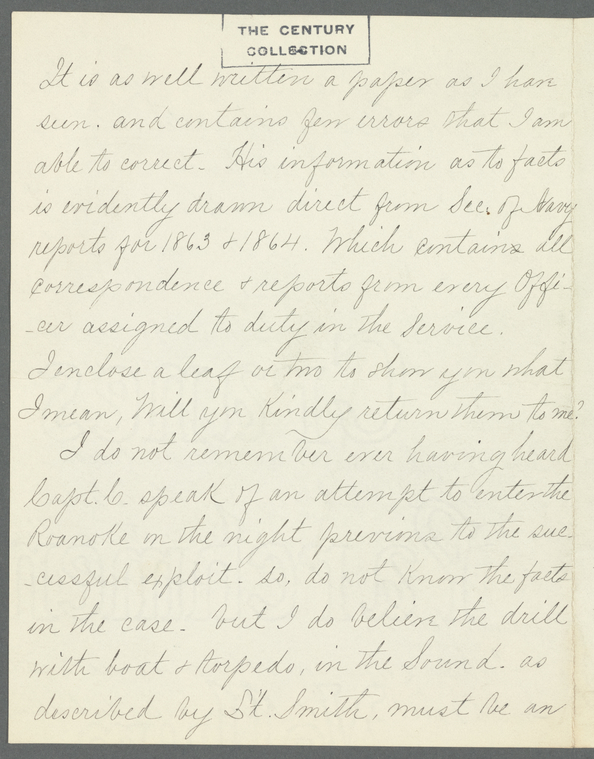 THE CENTURY
COLLECTION
It is as well written a paper as I have
seen. and contains few errors that I am
able to correct. His information as to facts
is evidently drawn direct from Sec. of Navy
reports for 1863 & 1864. Which contains all
correspondence & reports from every Offi-
-cer assigned to duty in the Service.
I enclose a leaf or two to show you what
I mean, Will you Kindly return them to me?
I do not remember ever having heard
Capt. C. speak of an attempt to enter the
Roanoke on the night previous to the suc-
-cessful exploit. so, do not Know the facts
in the case. but I do believe the drill
with boat & torpedo, in the Sound. as
described by Lt. Smith, must be an